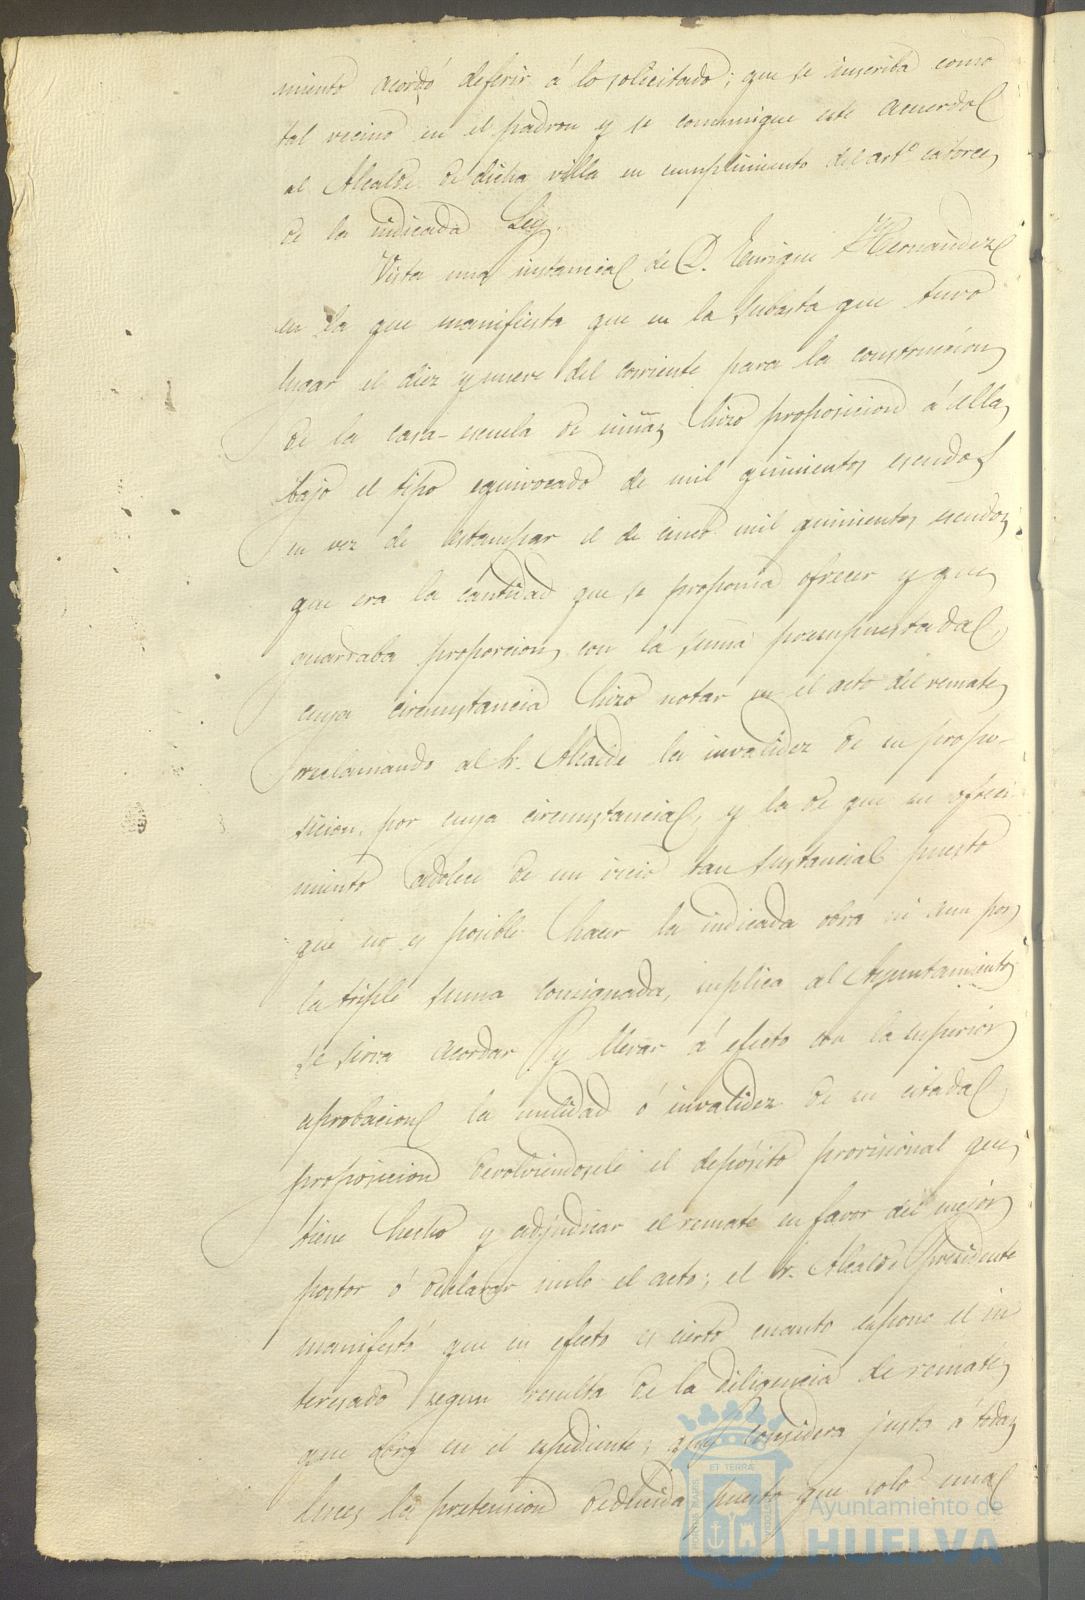 miento acordó deferir á lo solicitado; que se inscriba como
tal vecino en el padron y se comunique este acuerdo
al Alcalde de dicha villa en cumplimiento del artº catorce
de la indicada Ley.
Vista una instancia de D. Enrique Hernandez
en la que manifiesta que en la subasta que tuvo
lugar el diez y nueve del corriente para la construccion
de la casa-escuela de niñas hizo proposicion á ella
bajo el tipo equivocado de mil quinientos escudos
en vez de estampar el de cinco mil quinientos escudos
que era la cantidad que se proponia ofrecer y que
guardaba proporcion con la suma presupuestada
cuya circunstancia hizo notar en el acto del remate
reclamando al Sr. Alcalde la invalidez de su propo-
sicion, por cuya circunstancia, y la de que su ofreci
miento adolece de un vicio tan sustancial puesto
que no es posible hacer la indicada obra ni aun por
la triple suma consignada, suplica al Ayuntamiento
se sirva acordar y llevar á efecto con la superior
aprobacion la nulidad ó invalidez de su citada
proposicion devolviéndosele el depósito provisional que
tiene hecho y adjudicar el remate en favor del mejor
postor ó declarar nulo el acto; el Sr. Alcalde Presidente
manifestó que en efecto es cierto cuanto espone el in
teresado segun resulta de la diligencia de remate
que obra en el espediente; que considera justa á todas
luces la pretension deducida puesto que solo una
Ayuntamiento de
HUELVA